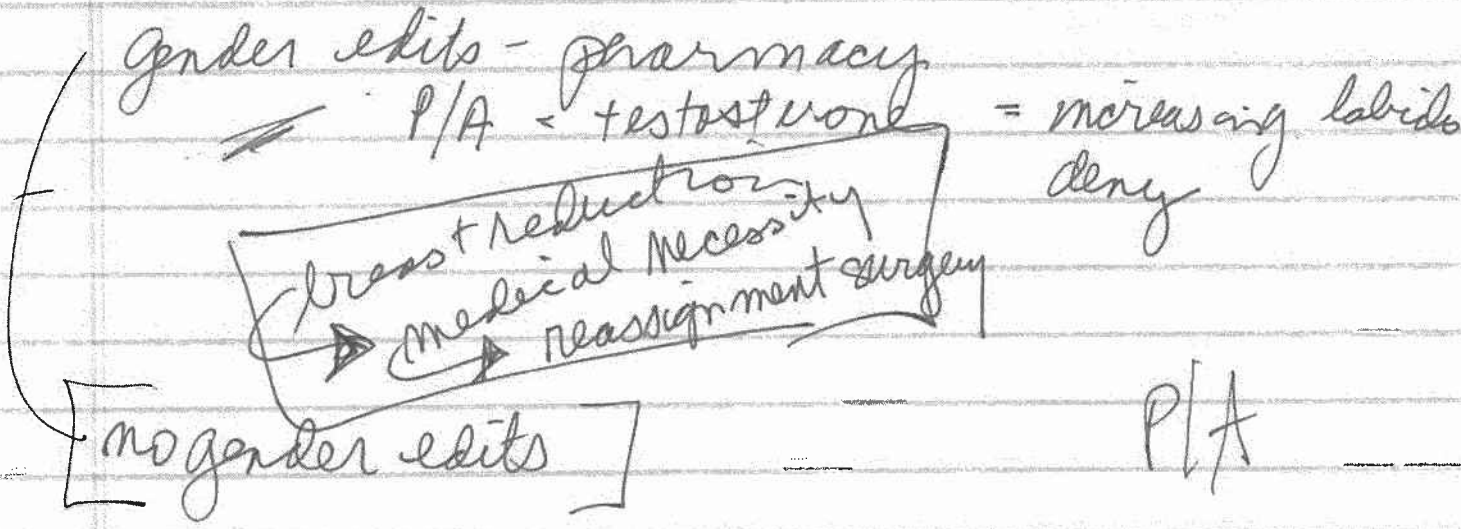 gender edits - pharmacy
P/A - testosterone = increasing labido
deny
breast reduction
medical necessity
reassignment surgery
[no gender edits]
P/A